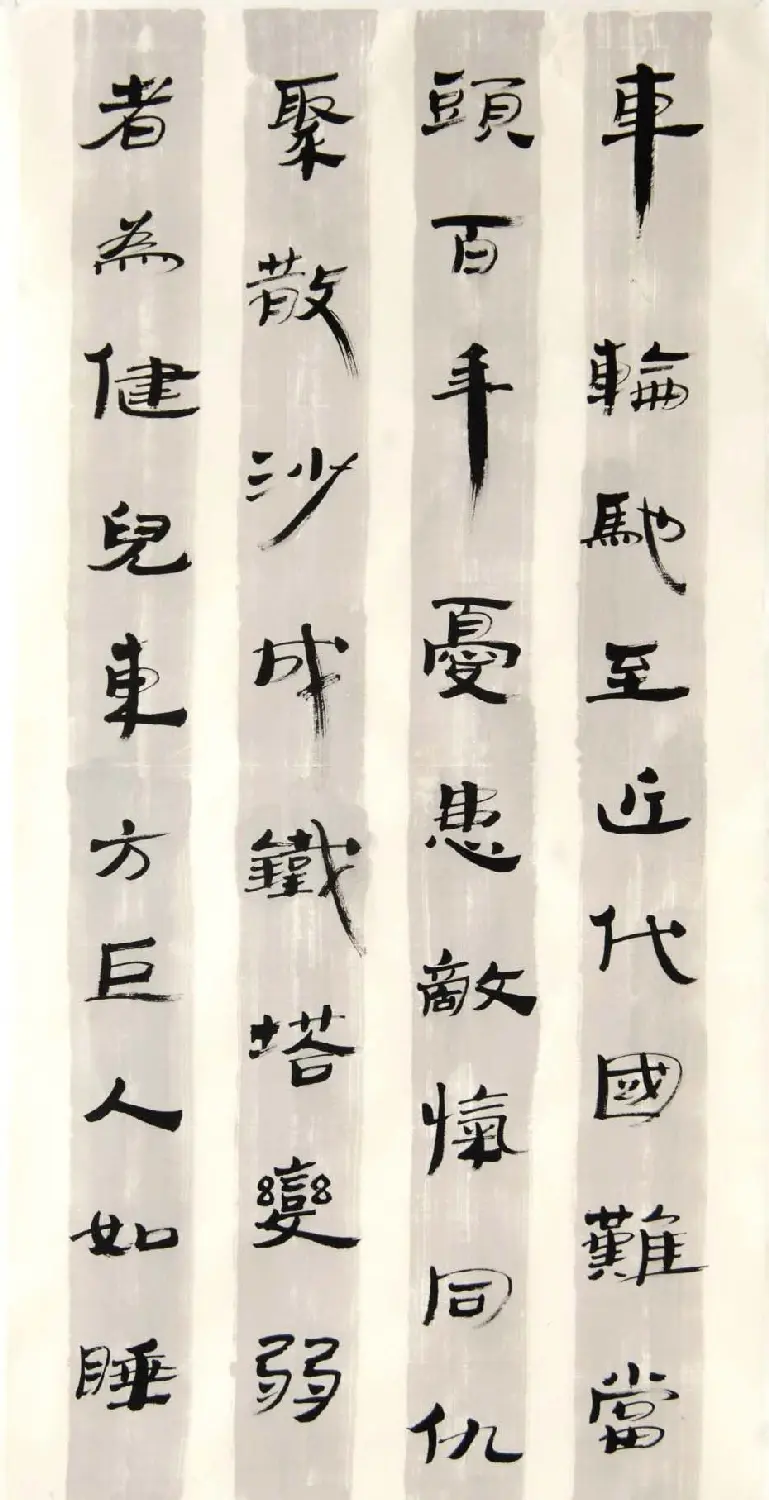 車輪馳至近代國難當
頭百年憂患敵愾同仇
聚散沙成鐵塔變弱
者為健兒東方巨人如睡